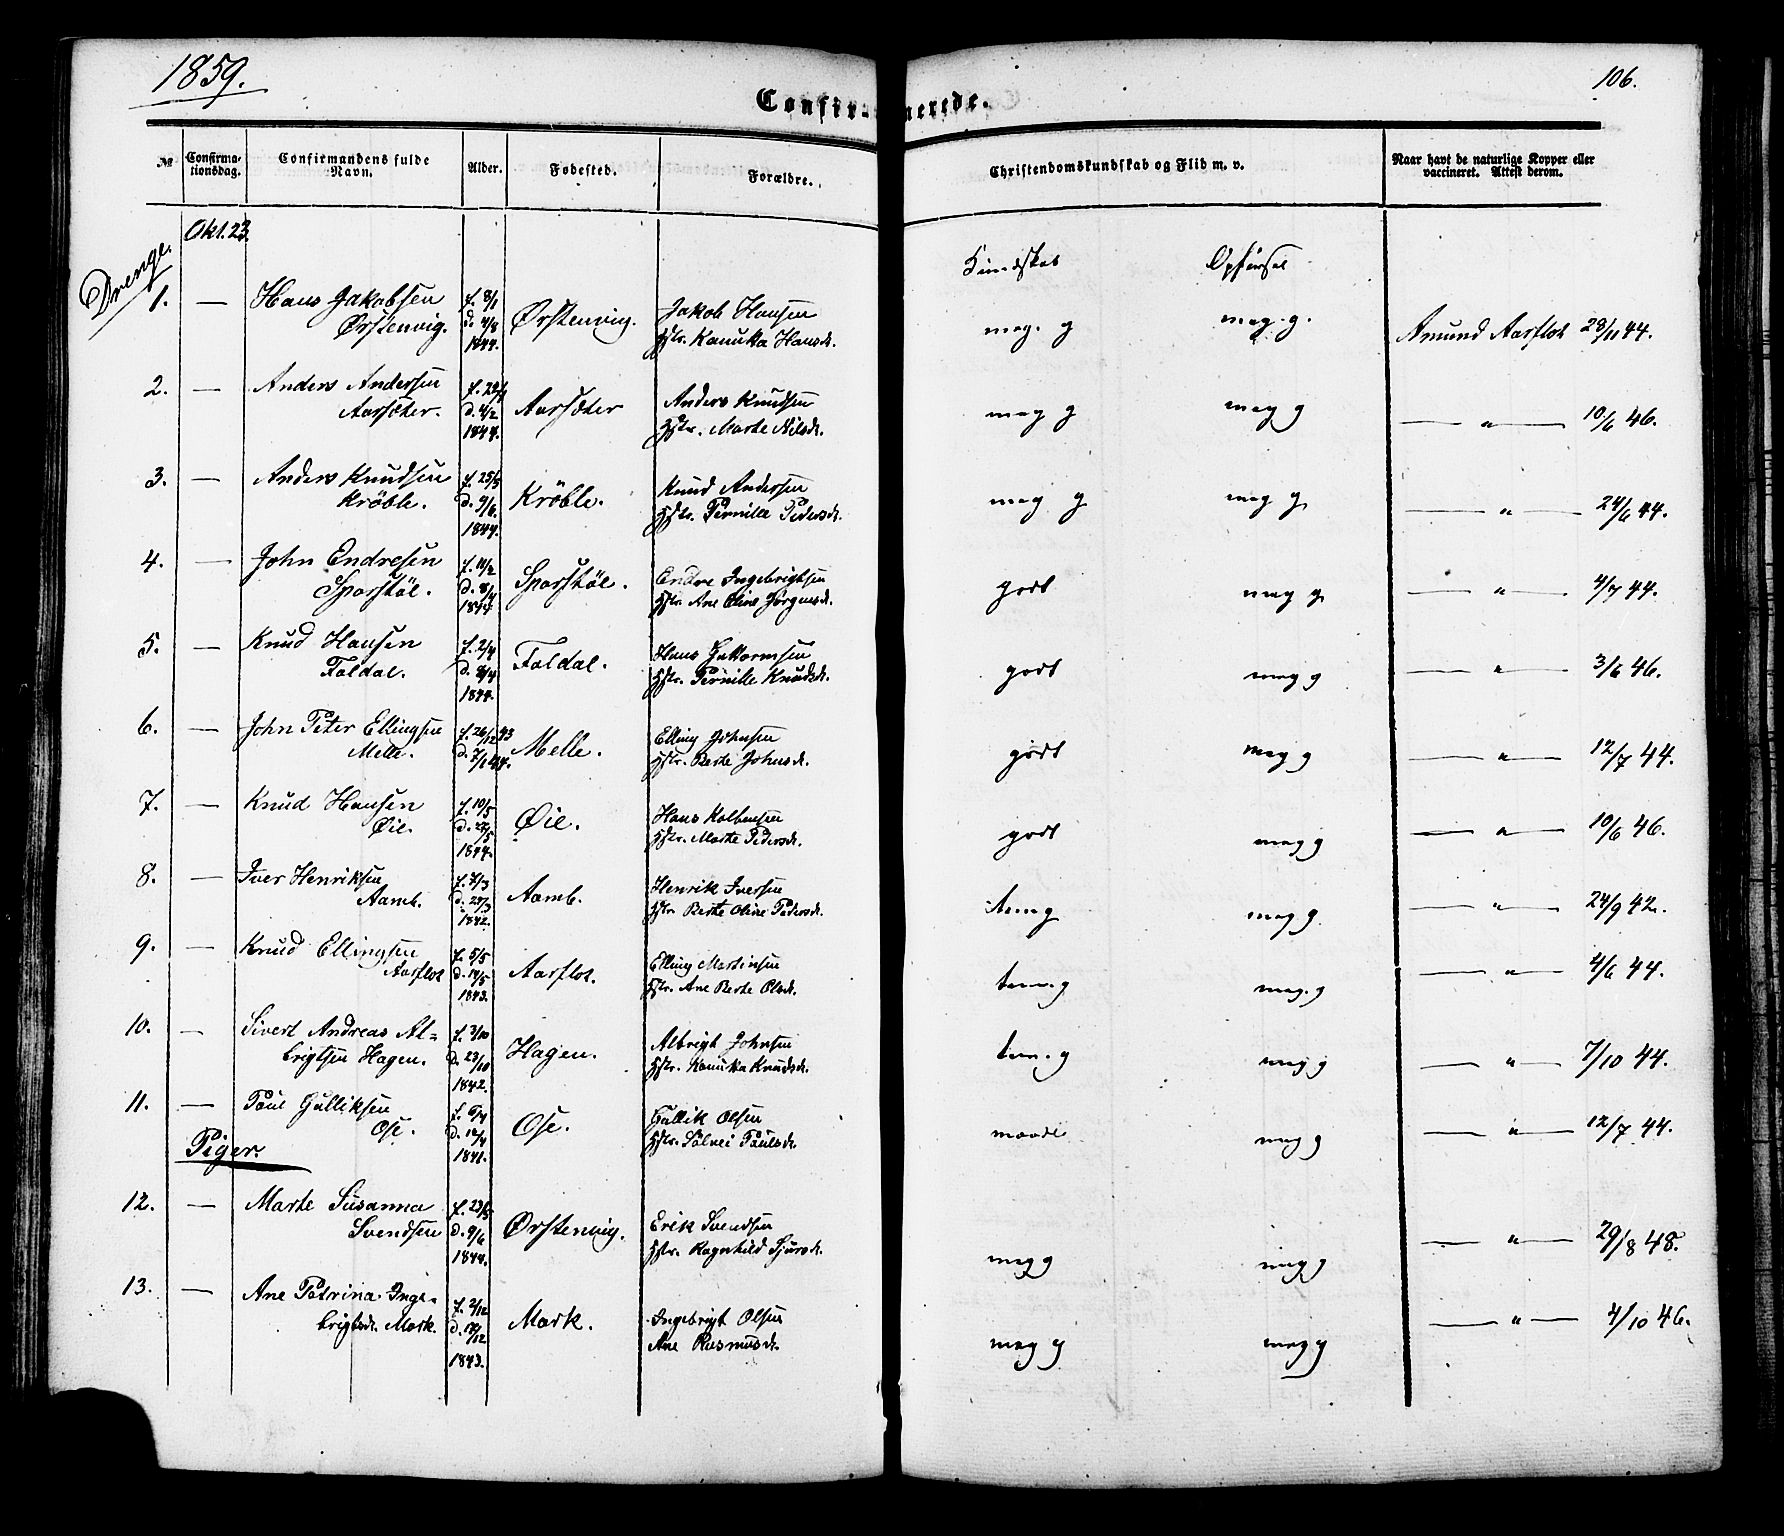 1859.
106.
Confirmerede.
№
Confirma-
tionsdag.
Confirmandens fulde
Navn.
Alder.
Fødested.
Forældre.
Christendomskundskab og Flid m. v.
Naar havt de naturlige Kopper eller
vaccineret. Attest derom.
Okt. 23.
Drenge.
Kundskab Opførsel
1. — Hans Jakobsen
Ørstenvig.
f. 8/1
d. 4/8
1844.
Ørstenvig.
Jakob Hansen
Hstr. Kanuka Hansdr.
meg. g meg. g. Amund Aarflot 28/11 44.
2. — Anders Andersen
Aarsæter.
d. 4/2
1844.
Aarsæter
Anders Knudsen
Hstr. Marte Nilsdr.
meg g meg g — " — 10/6 46.
3. — Anders Knudsen
Kröble.
f. 25/5
d. 9/6.
1844.
Kröble.
Knud Andersen
Hstr. Pernille Pedersdr.
meg g meg g — " — 24/6 44.
4. — John Endresen
Sporstöl.
f. 11/2
d. 8/4
1844.
Sporstöl.
Endre Ingebrigtsen
Hstr. Ane Oline Jørgensdr.
godt meg g — " — 4/7 44.
5. — Knud Hansen
Foldal.
f. 2/4
d. 8/4
1844.
Foldal.
Hans Guttormsen
Hstr. Pernille Knudsdr.
godt meg g — " — 3/6 46.
6. — John Peter Ellingsen
Melle.
f. 26/12 43
d. 7/1 44.
Melle.
Elling Johnsen
Hstr. Berte Johnsdr.
godt meg g — " — 12/7 44.
7. — Knud Hansen
Øie.
f. 10/5
d. 27/5
1844.
Øie.
Hans Kolbensen
Hstr. Marte Pedersdr.
godt meg g — " — 10/6 46.
8. — Iver Henriksen
Aamb.
f. 7/3
d. 27/3
1842.
Aamb.
Henrik Iversen
Hstr. Berte Oline Pedersdr.
tem g meg g. — " — 24/9 42.
9. — Knud Ellingsen
Aarflot
f. 5/5
d. 14/5
1843.
Aarflot.
Elling Martinsen
Hstr. Ane Berte Olsdr.
tem. g meg. g — " — 4/6 44.
10. — Sivert Andreas Al-
brigtsen Hagen.
f. 3/10
d. 23/10
1842.
Hagen.
Albrigt Johnsen
Hstr. Kanuka Knudsdr.
tem. g meg g — " — 7/10 44.
11. — Paul Gulliksen
Ose.
f. 6/4
d. 12/4
1841.
Ose.
Gullik Olsen
Hstr. Solvei Paulsdr.
maade meg g — " — 12/7 44.
Piger.
12. — Marte Susanna
Svendsen
f. 23/5
d. 9/6
1844.
Ørstenvig.
Erik Svendsen
Hstr. Ragnhild Sjursdr.
meg g meg g — " — 29/8 48.
13. — Ane Petrina Inge-
brigtsdr. Mork.
f. 2/12
d. 17/12
1843.
Mork.
Ingebrigt Olsen
Ane Rasmusdr.
meg g meg g — " — 4/10 46.